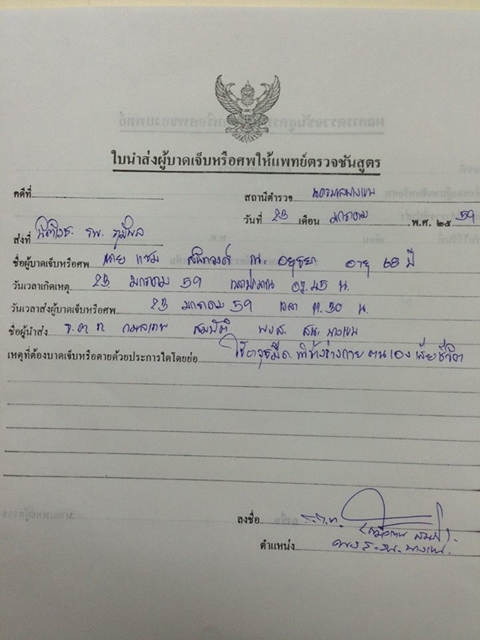 ใบนำส่งผู้บาดเจ็บหรือศพให้แพทย์ตรวจชันสูตร
คดีที่ สถานีตำรวจ นครบาลบางเขน
วันที่ 23 เดือน มกราคม พ.ศ. ๒๕ 59
ส่งที่ นิติเวช รพ. ภูมิพล
ชื่อผู้บาดเจ็บหรือศพ นาย แซม สนิทวงศ์ ณ อยุธยา อายุ 68 ปี
วันเวลาเกิดเหตุ 23 มกราคม 59 เวลาประมาณ 09.45 น.
วันเวลาส่งผู้บาดเจ็บหรือศพ 23 มกราคม 59 เวลา 11.30 น.
ชื่อผู้นำส่ง ร.ต.ท. กมลเทพ สมบัติ พงส. สน. บางเขน
เหตุที่ต้องบาดเจ็บหรือตายด้วยประการใดโดยย่อ ใช้อาวุธมีด ร่างกาย ตนเอง เสียชีวิต
ลงชื่อ ร.ต.ท.
ตำแหน่ง พงส. สน. บางเขน